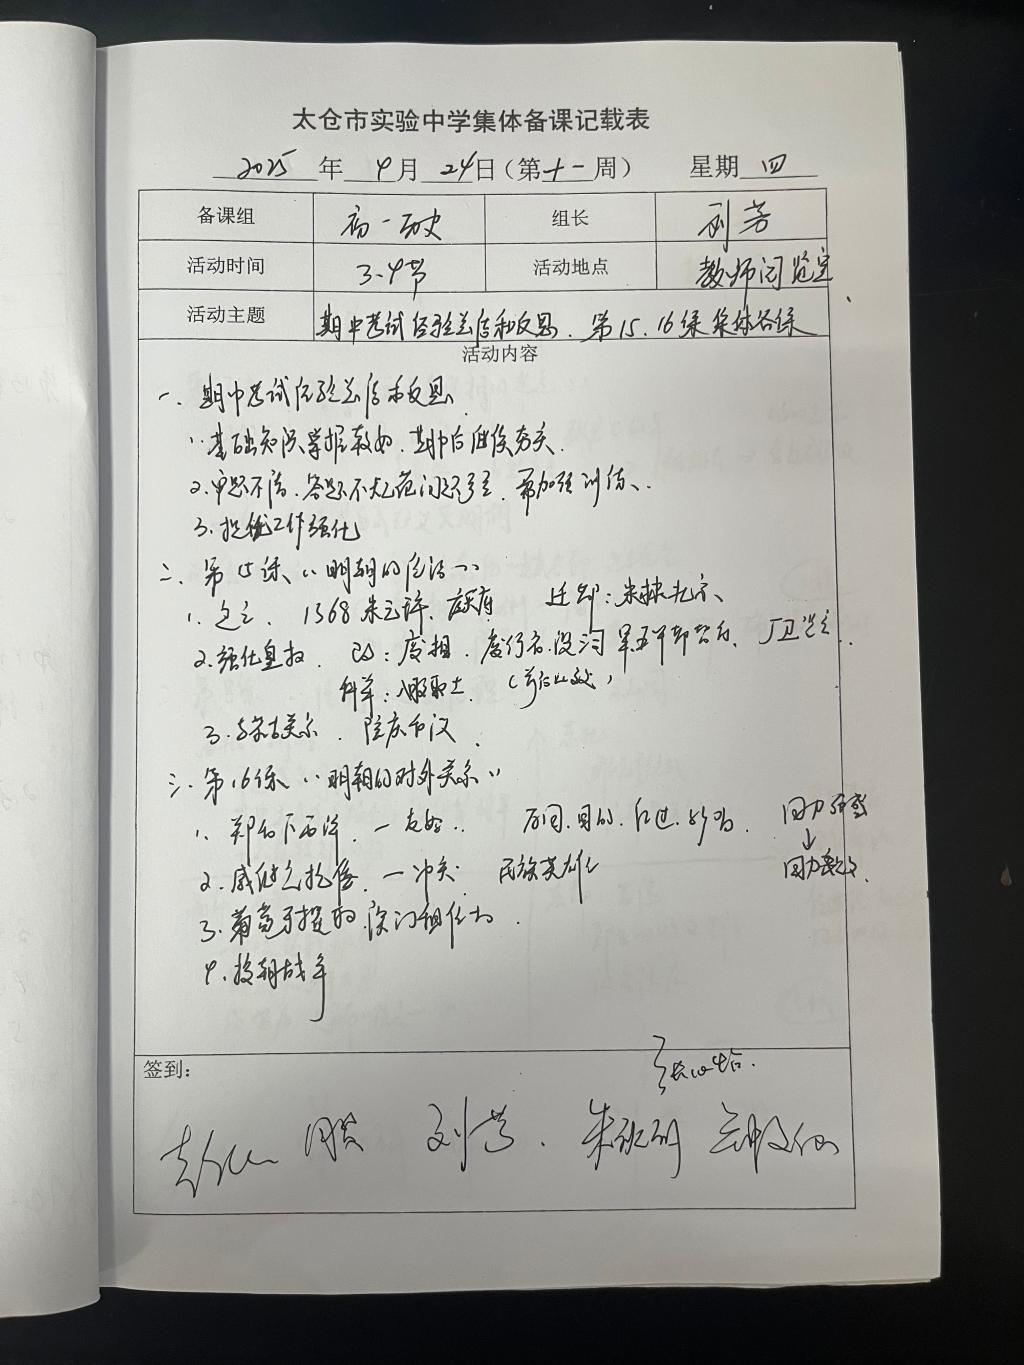 太仓市实验中学集体备课记载表
2025 年 4 月 24 日（第 十一 周） 星期 四
备课组 初一历史 组长 刘芳
活动时间 3.4节 活动地点 教师阅览室
活动主题 期中考试经验总结和反思、第15、16课集体备课
活动内容
一、期中考试经验总结和反思
1、基础知识掌握较好，期中后继续夯实
2、审题不清、答题不规范问题，需加强训练
3、提优工作强化
二、第15课、“明朝的统治”
1、建立、1368 朱元璋、应天府 迁都：朱棣 北京、
2、强化皇权、政：废相、废行省、设三司 军：五军都督府、厂卫 设立
科举：八股取士
3、与蒙古关系、隆庆和议、
三、第16课、“明朝的对外关系”
1、郑和下西洋、一友好、时间、目的、经过、影响、
2、戚继光抗倭、一冲突 民族英雄
3、葡萄牙攫取澳门租住权、
4、援朝战争
签到：
刘芳